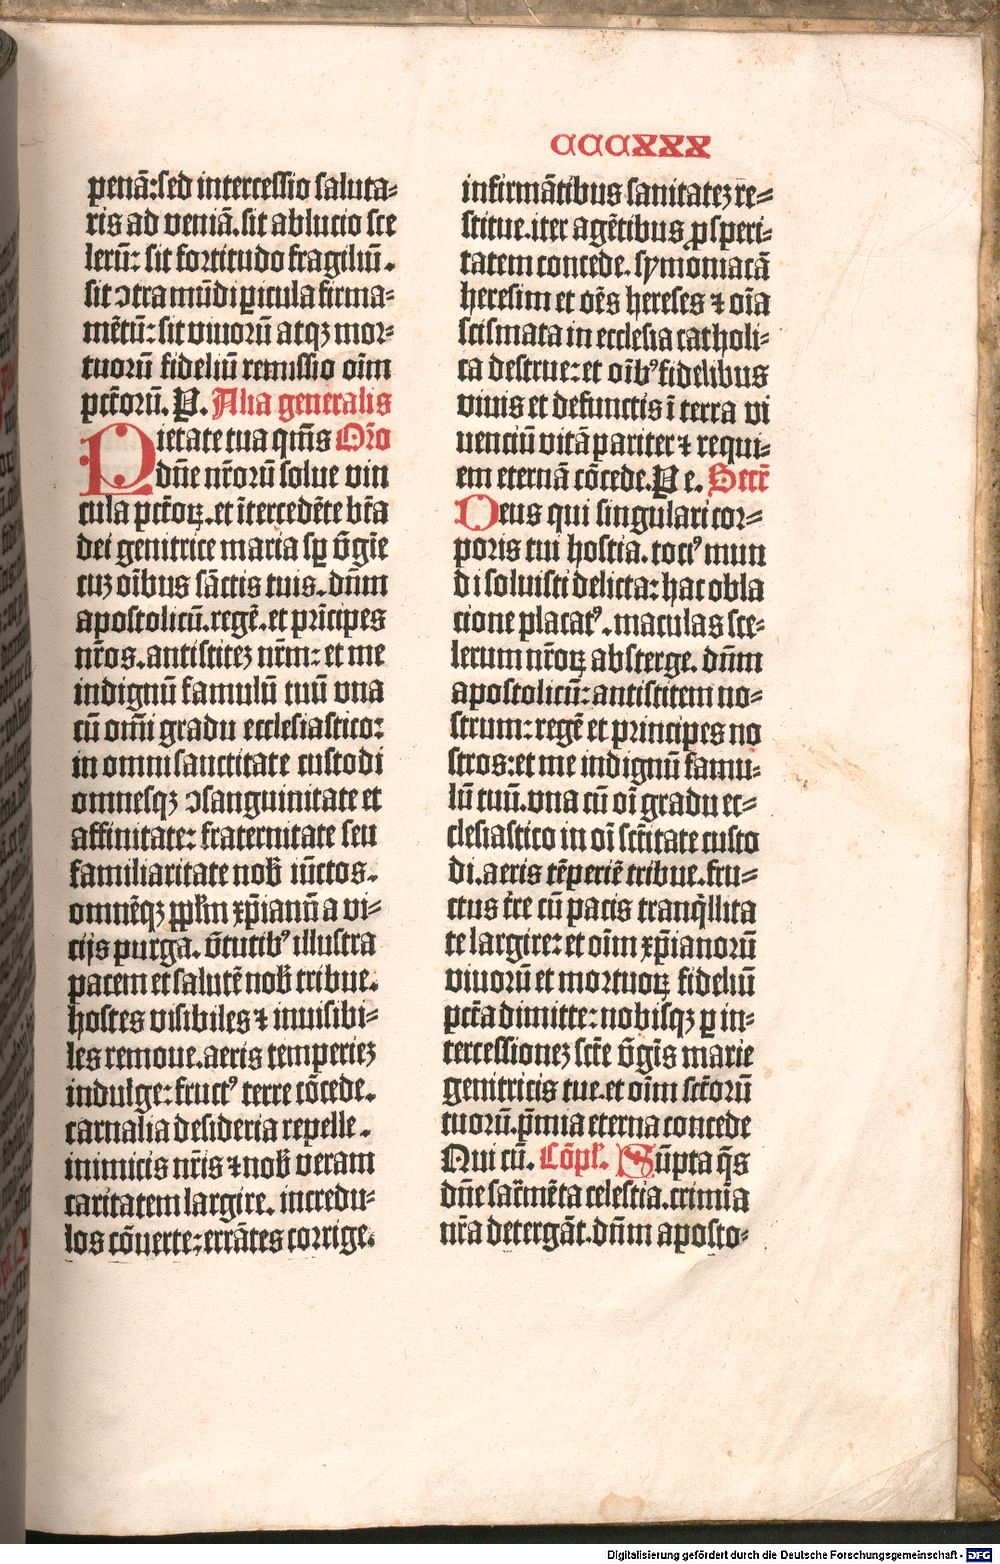 CCCXXX
penā:sed intercessio saluta-
ris ad veniā.sit ablucio sce
lerū: sit fortitudo fragiliū.
sit ↄtra mūdi ꝑicula firma-
mētū:sit viuorū atqꝫ mor-
tuorū fideliū remissio oīm
pctōrū. P. Alia generalis
Pietate tua qm̄s Or̄o
dn̄e nr̄orū solue vin
cula pctōꝝ.et ītercedēte bt̄a
dei genitrice maria sꝑ v̄gīe
cuꝫ oībus sāctis tuis.dn̄m
apostolicū.regē.et prīcipes
nr̄os.antistiteꝫ nr̄m:et me
indignū famulū tuū vna
cū om̄i gradu ecclesiastico:
in omni sanctitate custodi
omnesqꝫ ↄsanguinitate et
affinitate: fraternitate seu
familiaritate nob̄ iūctos.
omnēqꝫ pp̄lm xp̄ianū a vi-
cijs purga. v̄tutibꝰ illustra
pacem et salutē nob̄ tribue.
hostes visibiles ⁊ inuisibi-
les remoue.aeris temperieꝫ
indulge:fructꝰ terre cōcede.
carnalia desideria repelle.
inimicis nr̄is ⁊ nob̄ veram
caritatem largire. incredu-
los cōuerte:errātes corrige.
infirmātibus sanitateꝫ re-
stitue.iter agētibus ꝓsperi-
tatem concede. symoniacā
heresim et oēs hereses ⁊ oīa
scismata in ecclesia catholi-
ca destrue:et oībꝰ fidelibus
viuis et defunctis ī terra vi
uenciū vitā pariter ⁊ requi-
em eternā cōcede.P e. Secr̄
Deus qui singulari cor-
poris tui hostia. tociꝰ mun
di soluisti delicta: hac obla
cione placatꝰ. maculas sce-
lerum nr̄oꝝ absterge. dn̄m
apostolicū: antistitem no-
strum: regē et principes no
stros:et me indignū famu-
lū tuū.vna cū oī gradu ec-
clesiastico in oī sc̄titate custo
di.aeris tēperiē tribue.fru-
ctus tr̄e cū pacis tranq̇llita
te largire:et oīm xp̄ianorū
viuorū et mortuoꝝ fideliū
pctā dimitte:nobisqꝫ ꝑ in-
tercessioneꝫ sct̄e v̄gīs marie
genitricis tue.et oīm sct̄orū
tuorū.p̄mia eterna concede
Qui cū. Cōpl̄. Sūpta q̄s
dn̄e sacr̄mēta celestia.crimīa
nr̄a detergāt.dn̄m aposto-
Digitalisierung gefördert durch die Deutsche Forschungsgemeinschaft - DFG